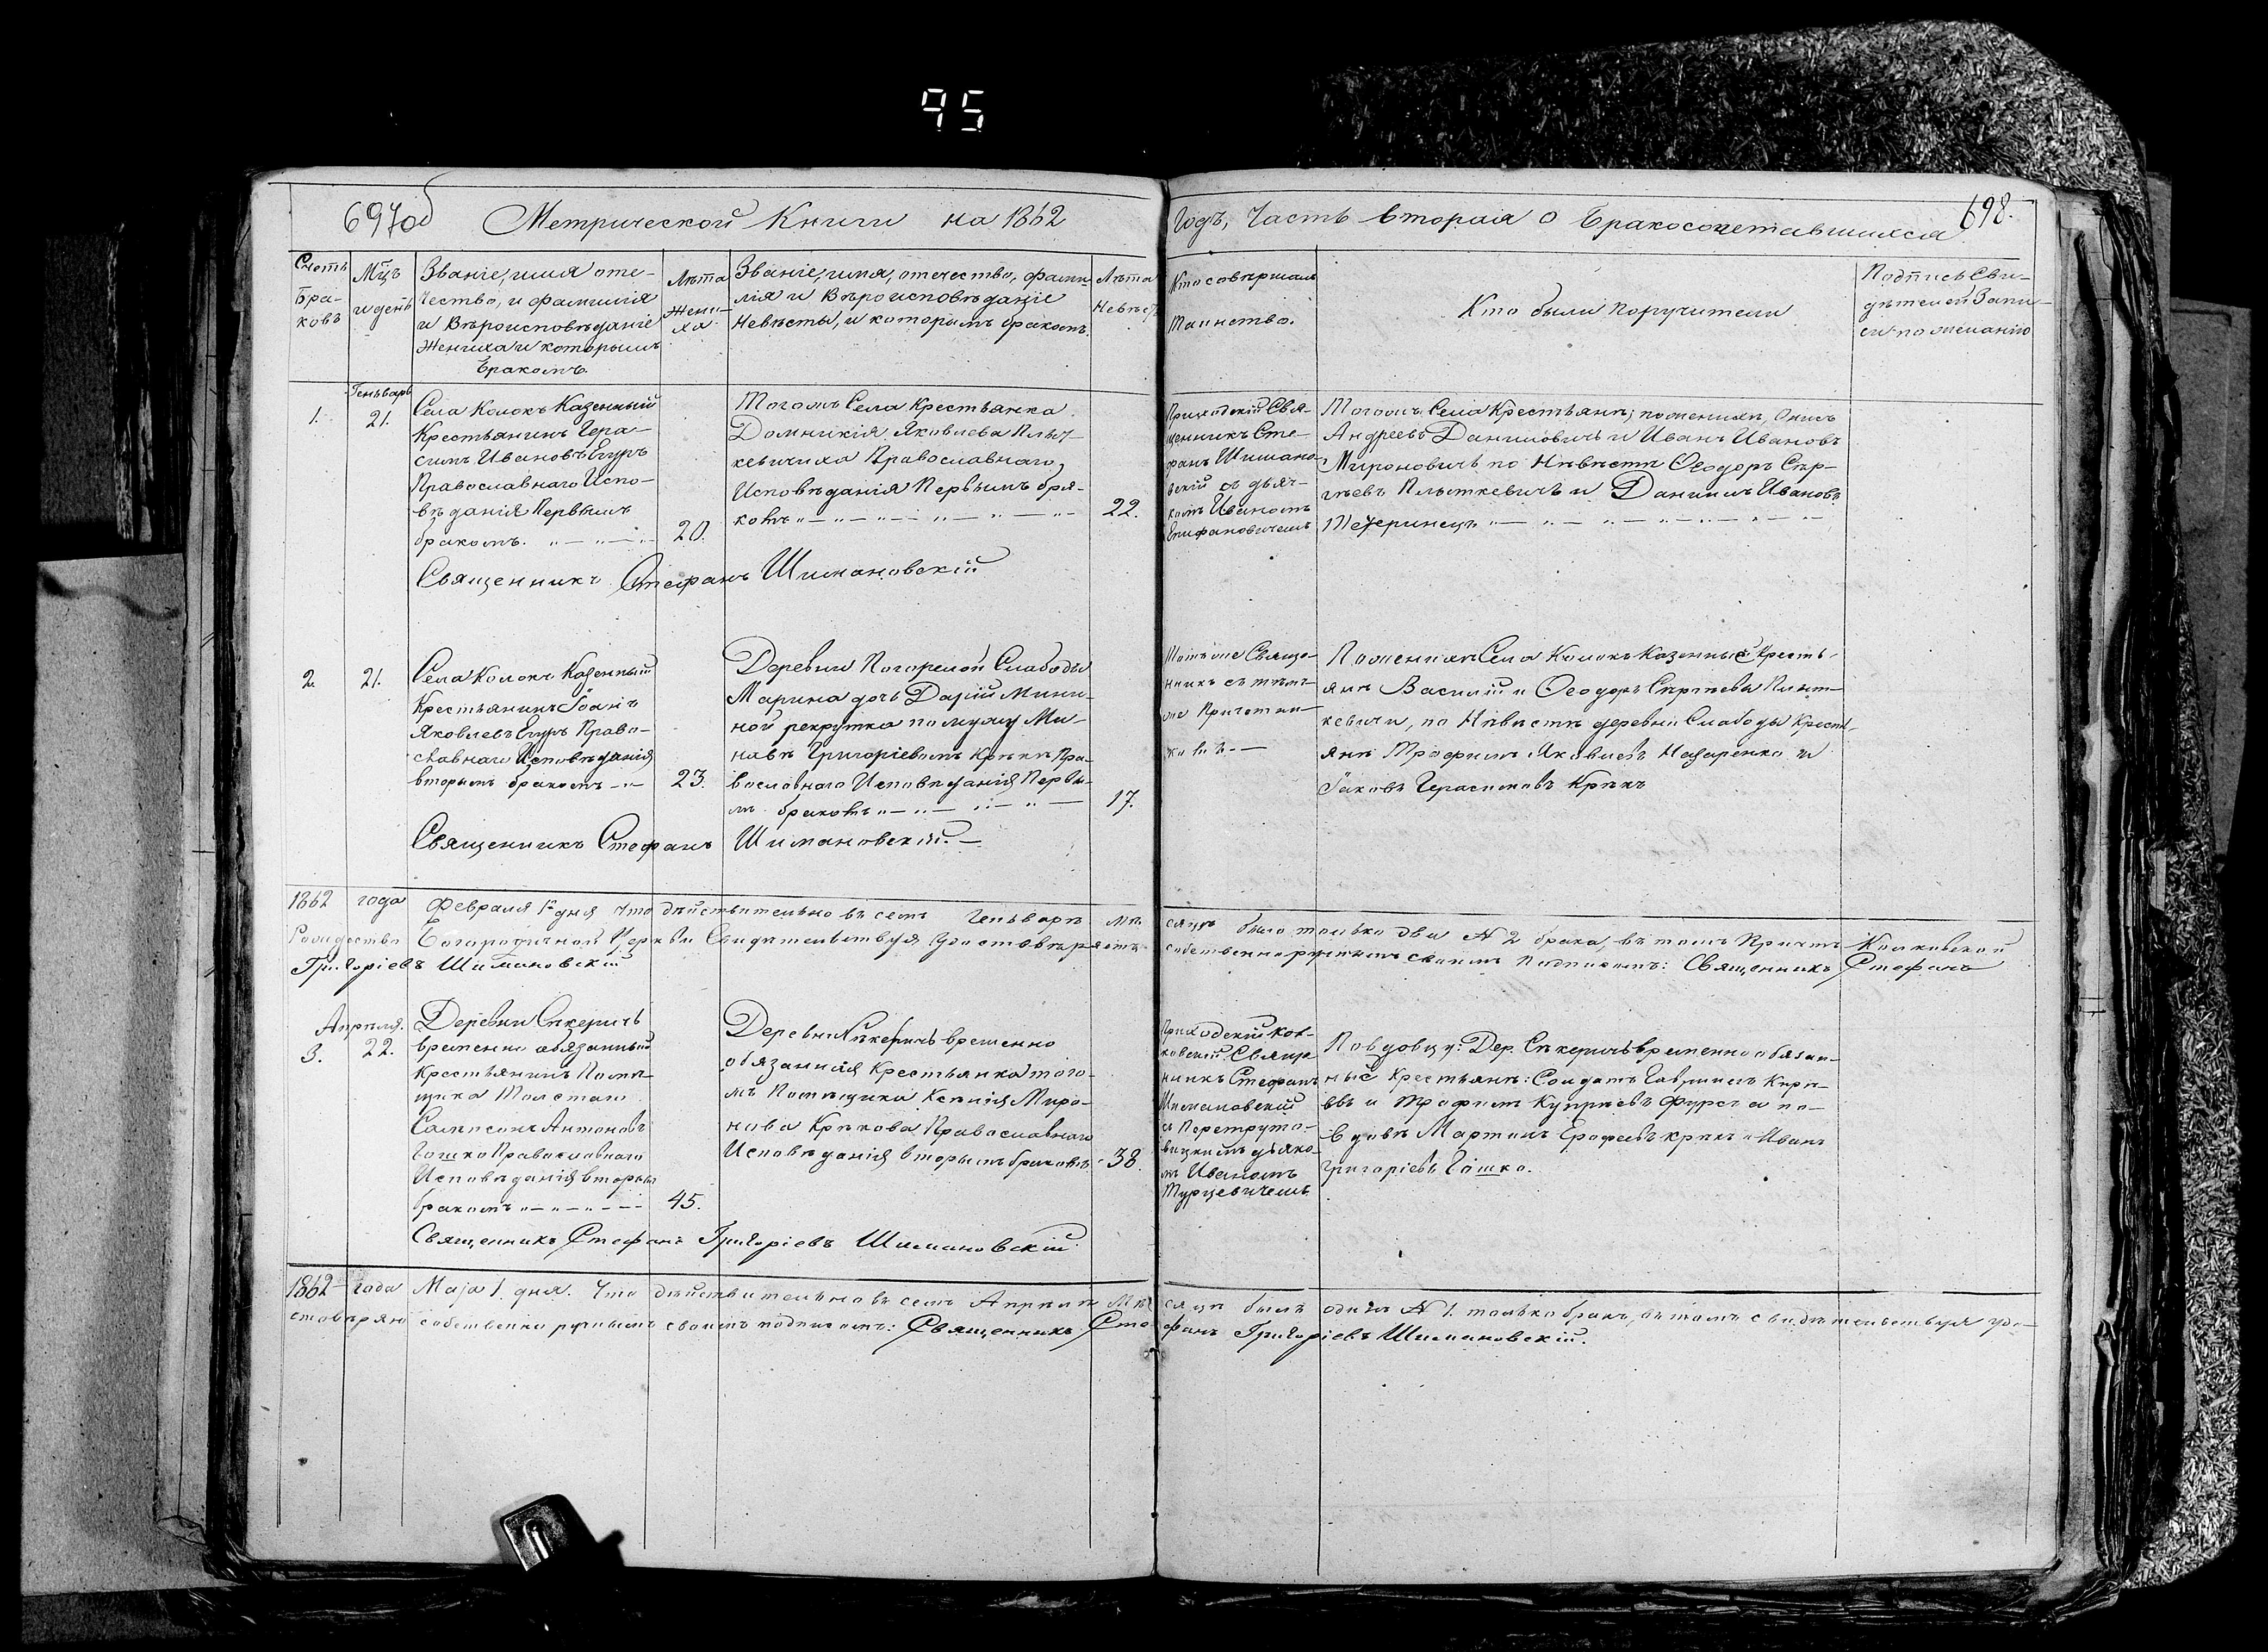 95
697об Метрической Книги на 1862
Годъ, Часть вторая о бракосочетавшихся
698.
Счетъ Браковъ
Мцъ и день
Званіе, имя оте-
чество, и фамилія
и Вѣроисповѣданіе
Жениха и которымъ
бракомъ.
Лѣта
Жени-
ха
Званіе, имя, отечество, фами-
лія и Вѣроисповѣданіе
Невѣсты, и которымъ бракомъ.
Лѣта
Невѣсты
Кто совершалъ
Таинство.
Кто были поручители
Подпись Сви-
дѣтелей Запи-
си по желанію
Генъварь
1.
21.
Села Колокъ Казенный
Крестьянинъ Гера-
симъ Ивановъ Егуръ
Православнаго Испо-
вѣданія Первымъ
бракомъ.
20.
Тогожъ Села Крестьянка
Домникія Яковлева Плыт-
кевичиха Православнаго
Исповѣданія Первымъ бра-
комъ
22.
Приходскій Свя-
щенникъ Сте-
фанъ Шимано-
вскій съ дьяч-
комъ Иваномъ
Епифановичемъ
Тогожъ Села Крестьяне; по женихѣ,
Андреевъ Даниловичъ и Иванъ Ивановъ
Мироновичъ по Невѣстѣ Ѳеодоръ Сер-
гѣевъ Плыткевичъ и Даніилъ Ивановъ
Священникъ Стефанъ Шимановскій
2.
21.
Села Колокъ Казенный
Крестьянинъ Іоанъ
Яковлевъ Егуръ Право-
славнаго Исповѣданія
вторымъ бракомъ
23.
Деревни Погорелой Слабоды
Марина дочь Дарій Мини-
ной рекрутка по мужу Ми-
наѣ Григоріевомъ Крѣкѣ Пра-
вославнаго Исповѣданія Первы-
мъ бракомъ
17.
Тотъ же Свяще-
нникъ съ тѣмъ-
же Причетни-
комъ
По женихѣ Села Колокъ Казенные Кресть-
яне Василій и Ѳеодоръ Сергѣевы Плыт-
кевичи, по Невѣстѣ деревни Слабоды Кресть-
яне Трофимъ Яковлевъ Назаренко и
Іаковъ Герасимовъ Крѣкъ
Священникъ Стефанъ Шимановскій.
1862 года Февраля 1го дня Что дѣйствительно въ семъ Генъварѣ мѣ-
сяцѣ было только два № 2 брака, въ томъ Причтъ Колковской
Рождество Богородичной Церкви Свидѣтельствуя удостовѣряетъ
собственноручнымъ своимъ подписомъ: Священникъ Стефанъ
Григоріевъ Шимановскій
Апрѣля.
3.
22.
Деревни Секеричъ
временно обязанный
Крестьянинъ Помѣ-
щика Толстаго
Самсонъ Антоновъ
Гошко Православнаго
Исповѣданія вторымъ
бракомъ
45.
Деревни Секеричъ временно
обязанная Крестьянка того-
жъ Помѣщика Ксенія Миро-
нова Крѣкова Православнаго
Исповѣданія вторымъ бракомъ
38.
Приходскій Кол-
ковскій Свяще-
нникъ Стефанъ
Шимановскій
съ Перетруто-
вицкимъ дьячко-
мъ Иваномъ
Турцевичемъ
По вдовцу: Дер. Секеричъ временнообязан-
ные Крестьяне: Солдатъ Гавріилъ Кире-
евъ и Трофимъ Купрѣевъ Фурса и по-
вдовѣ Мартинъ Ерофеевъ Крѣкъ и Иванъ
Григоріевъ Гошко.
Священникъ Стефанъ Григоріевъ Шимановскій
1862 года Маја 1 дня. Что дѣйствительно въ семъ Апрѣлѣ мѣ-
сяцѣ былъ одинъ № 1. только бракъ, въ томъ свидѣтельствуя удо-
стовѣряю собственно ручнымъ своимъ подписомъ: Священникъ Сте-
фанъ Григоріевъ Шимановскій.